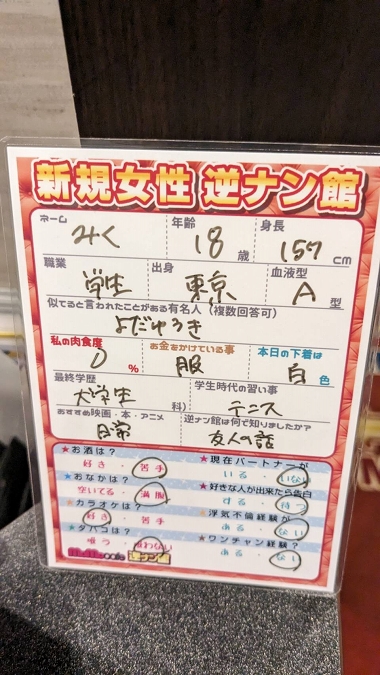 新規女性 逆ナン館
ネーム 年齢 身長
みく 18歳 157cm
職業 出身 血液型
学生 東京 A型
似てると言われたことがある有名人(複数回答可)
よだゆうき
私の肉食度 お金をかけている事 本日の下着は
0% 服 白色
最終学歴 学生時代の習い事
大学生 科) テニス
おすすめ映画・本・アニメ 逆ナン館は何で知りましたか?
日常 友人の話
★お酒は? ★現在パートナーが
好き・苦手 いる・いない
★おなかは? ★好きな人が出来たら告白
空いてる・満腹 する・待つ
★カラオケは? ★浮気不倫経験が
好き・苦手 ある・ない
★タバコは? ★ワンチャン経験?
吸う・吸わない ある・ない
cafe 逆ナン館